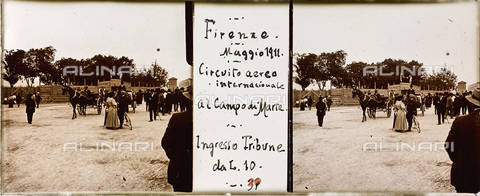 Firenze.
Maggio 1911.
Circuito aereo
internazionale
al Campo Marte.
Ingresso Tribune
da L. 10.
ALINARI
ALINARI
ALINARI
ALINARI